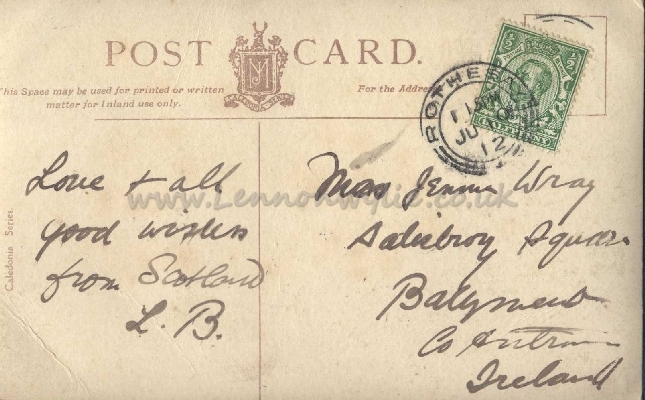 POST CARD.
This Space may be used for printed or written
matter for Inland use only.
For the Address
ROTHES
JU
12
1/2 1/2
HALFPENNY
Caledonia Series.
Love & all
good wishes
from Scotland
L. B.
Miss Jennie Wray
Salisbroy Square
Balymena
Co Antrim
Ireland
www.Lennonwylie.co.uk